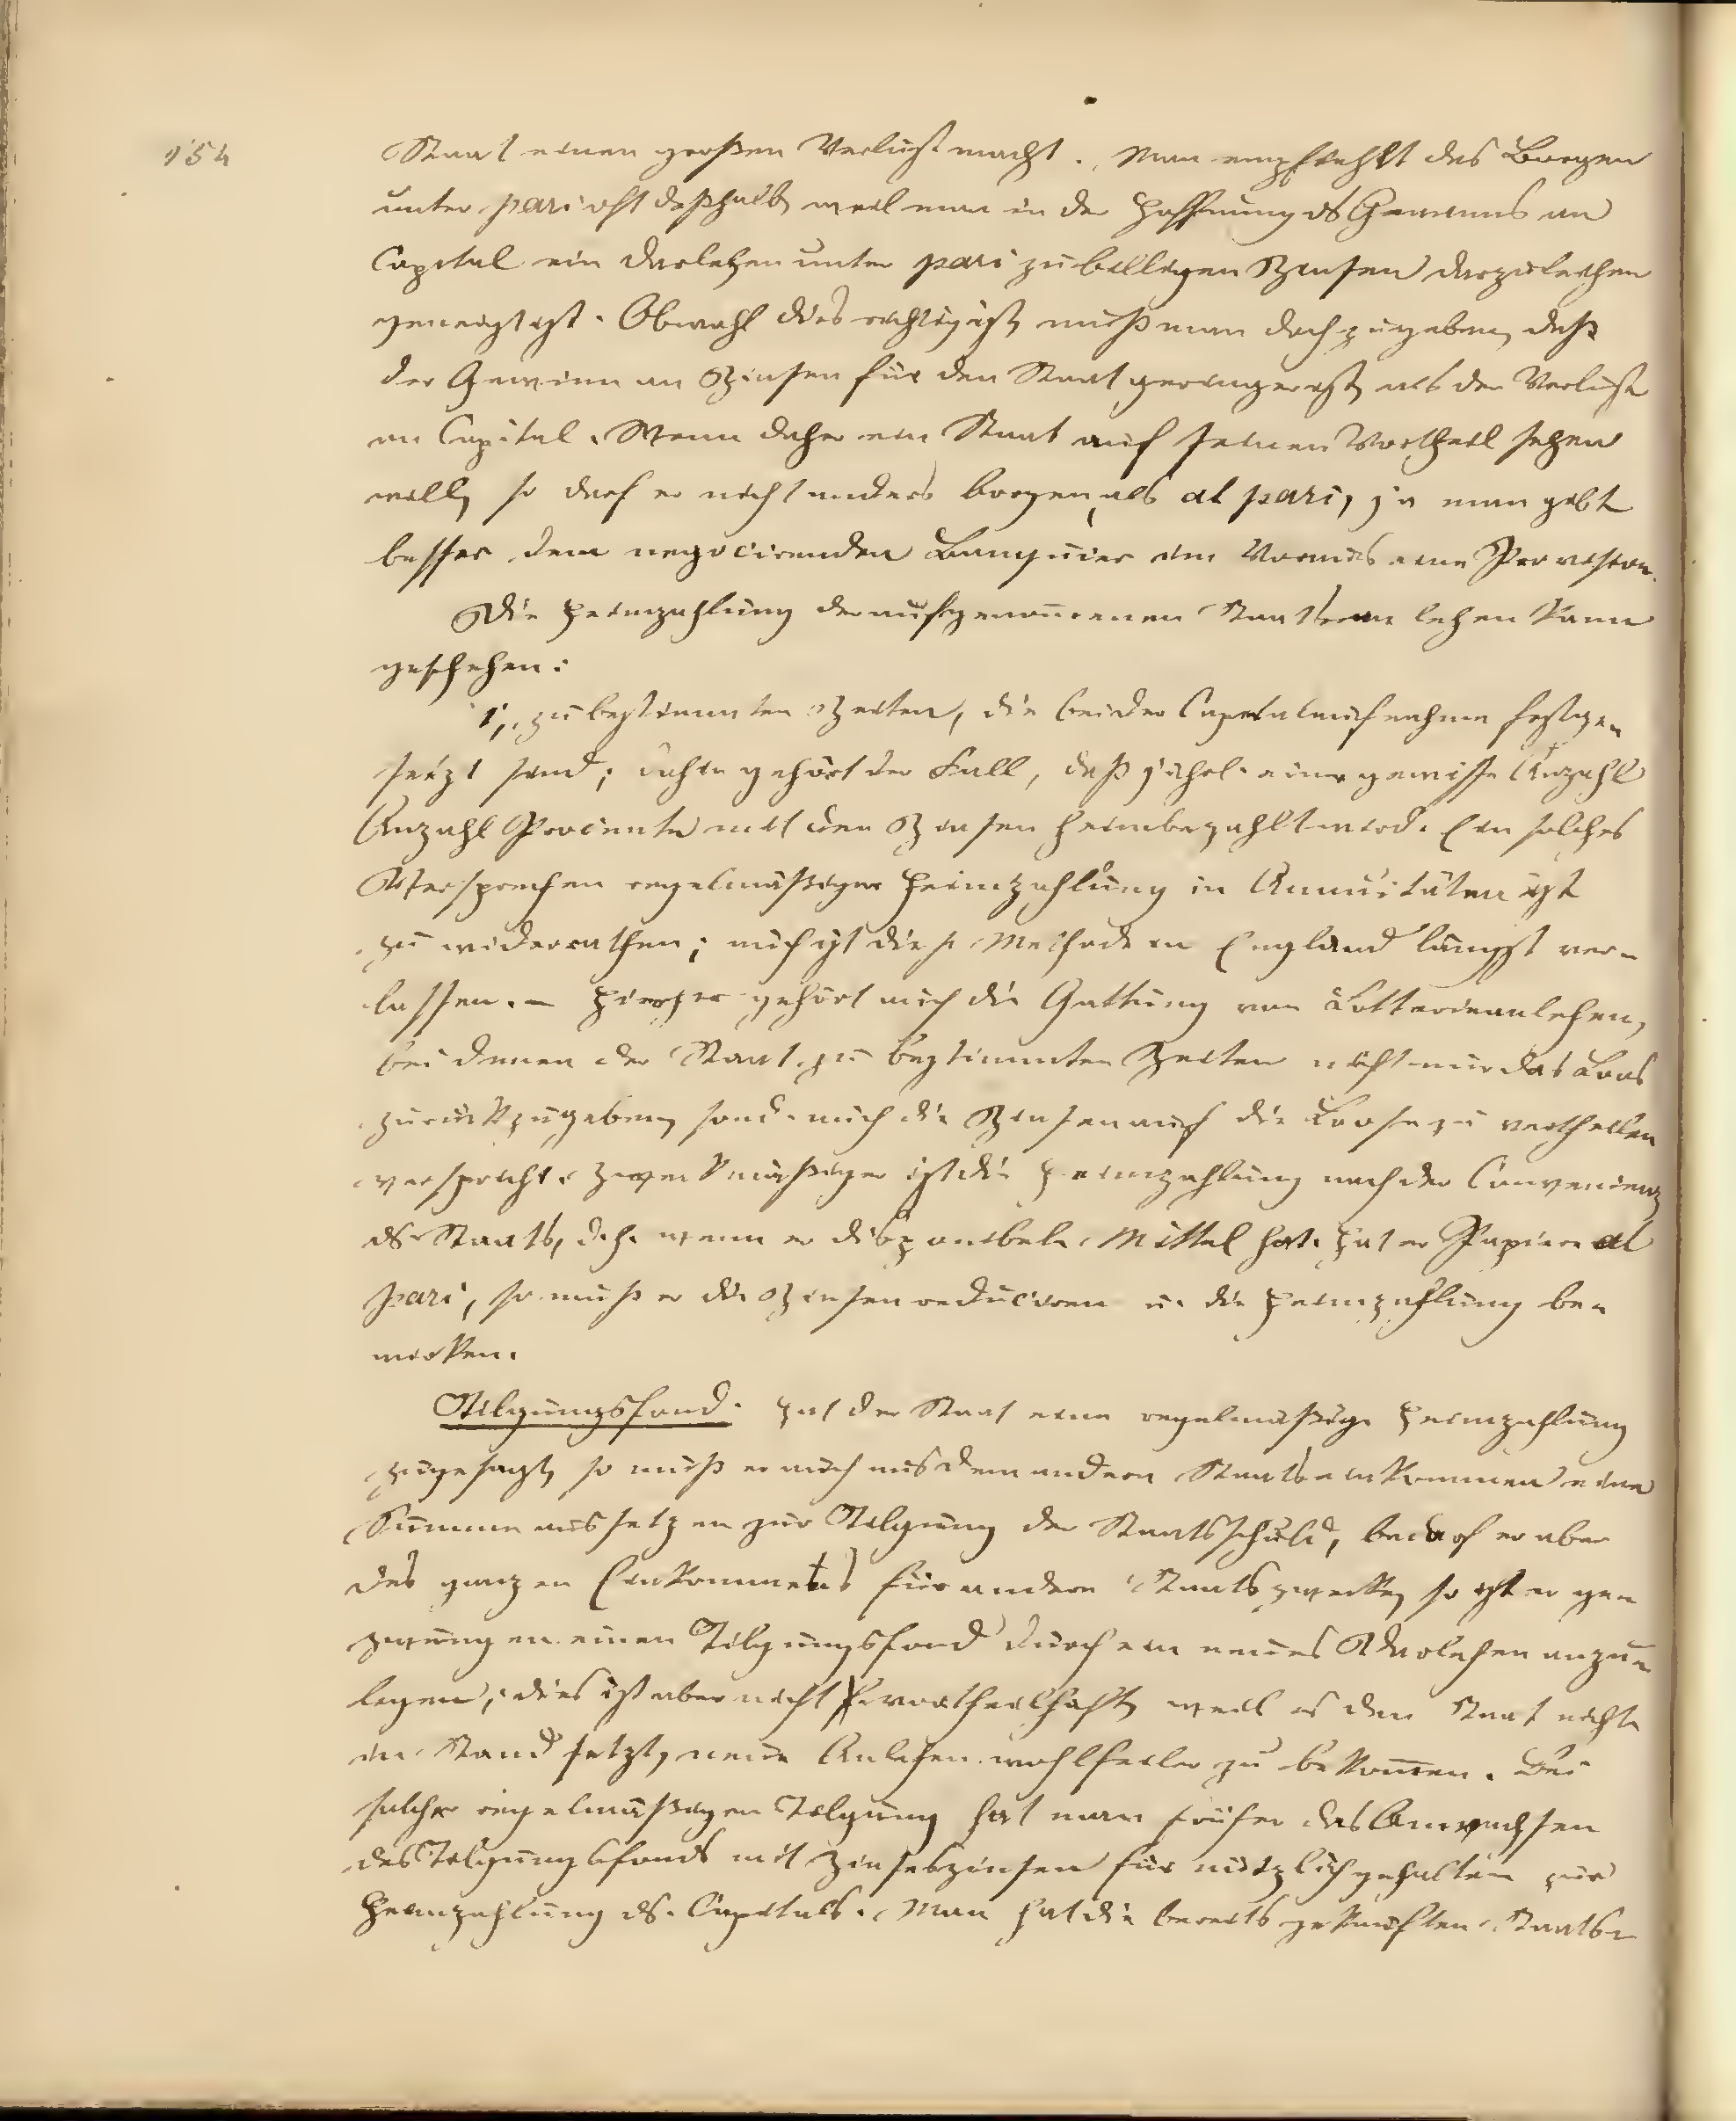 154
Staat einen großen Verlust macht. Man empfiehlt das Borgen
unter pari oft deßhalb, weil man in der Hoffnung ds Gewinns an
Capital ein Darlehen unter pari zu billigen Zinsen darzuleihen
geneigt ist. Obwohl dies richtig ist, muß man doch zugeben, daß
der Gewinn an Zinsen für den Staat geringer ist, als der Verlust
an Capital. Wenn daher ein Staat auf seinen Vortheil sehen
will, so darf er nicht anders borgen, als al pari, ja man gibt
besser dem negocirenden Banquier im Voraus eine Provision.
Die Heimzahlung der aufgenommenen Staatsanlehen kann
geschehen:
1, zu bestimmten Zeiten, die bei der Capitalaufnahme festge-
setzt sind; dahin gehört der Fall, daß jährl. eine gewisse Anzahl
Anzahl Procente mit den Zinsen heimbezahlt wird. Ein solches
Versprechen regelmäßiger Heimzahlung in Annuitäten ist
zu widerrathen; auch ist diese Methode in England längst ver-
lassen. – Hierher gehört auch die Gattung von Lotterieanlehen,
bei denen der Staat zu bestimmten Zeiten nicht nur das Loos
zurückzugeben, sond. auch die Zinsen auf die Loose zu vertheilen
verspricht. Zweckmäßiger ist die Heimzahlung nach der Convenienz
ds Staats, d. h. wenn er disponible Mittel hat. Hat er Papiere al
pari, so muß er die Zinsen reduciren u. die Heimzahlung be-
wirken.
Tilgungsfond. Hat der Staat eine regelmäßige Heimzahlung
zugesagt, so muß er auch aus dem andern Staatseinkommen eine
Summe aussetzen zur Tilgung der Staatsschuld, bedarf er aber
des ganzen Einkommens für andere Staatszwecke, so ist er ge-
zwungen einen Tilgungsfond durch ein neues Darlehen anzu-
legen; dies ist aber nicht vortheilhaft, weil es den Staat nicht
in Stand setzt, neue Anlehen wohlfeiler zu bekommen. Bei
solcher regelmäßigen Tilgung hat man früher das Anwachsen
des Tilgungsfonds mit Zinseszinsen für nützlich gehalten zur
Heimzahlung ds Capitals. Man hat die bereits gekauften Staats-